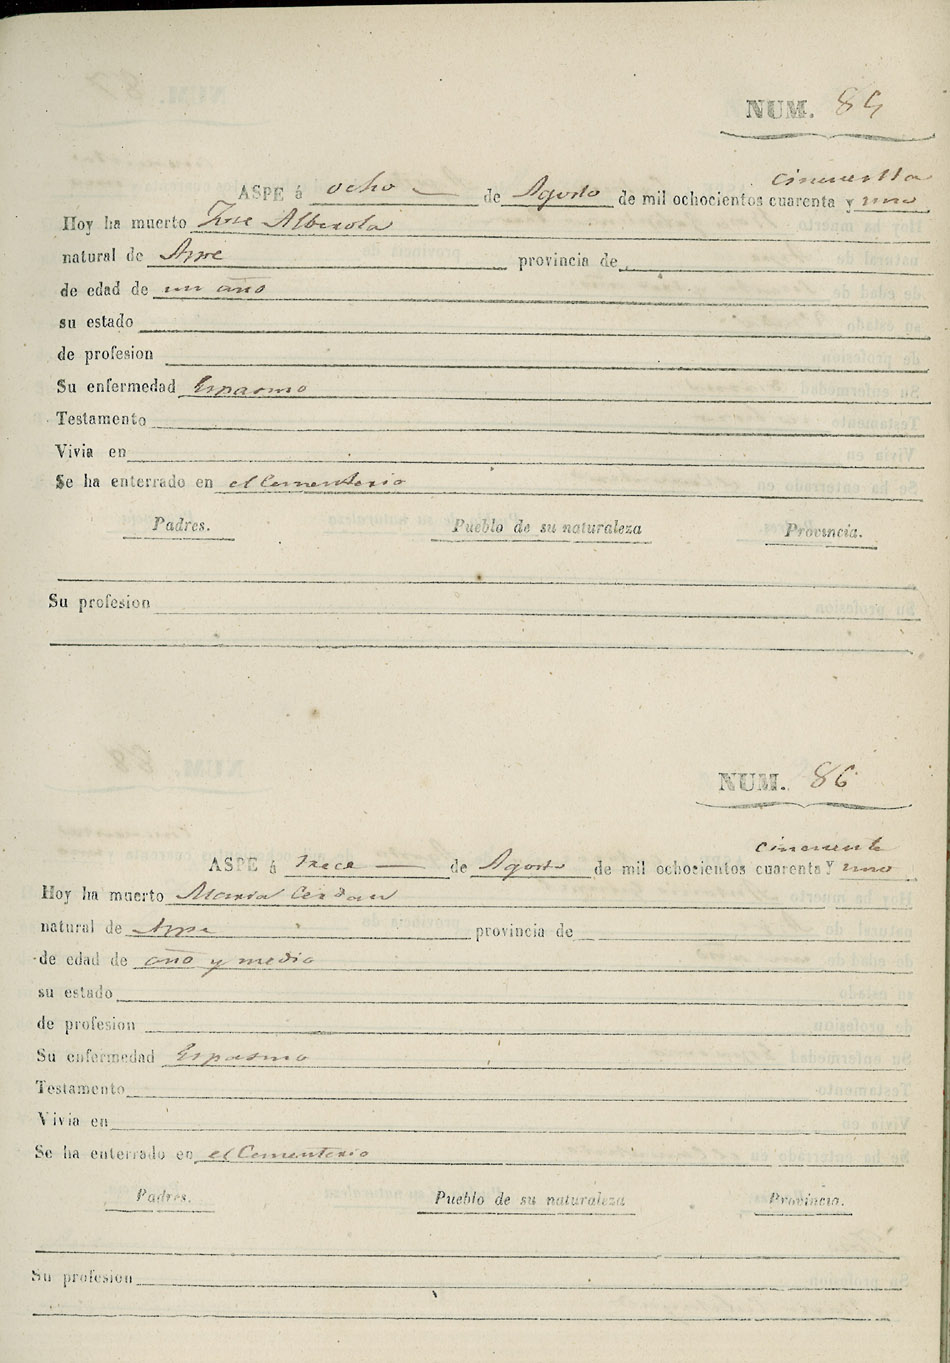 NUM. 85
cincuenta
ASPE á ocho de Agosto de mil ochocientos cuarenta y uno
Hoy ha muerto Jose Alberola
natural de Aspe provincia de
de edad de un año
su estado
de profesion
Su enfermedad Espasmo
Testamento
Vivia en
Se ha enterrado en el Cementerio
Padres. Pueblo de su naturaleza Provincia.
Su profesion
NUM. 86
cincuenta
ASPE á trece de Agosto de mil ochocientos cuarenta Y uno
Hoy ha muerto Maria Cerdan
natural de Aspe provincia de
de edad de año y medio
su estado
de profesion
Su enfermedad Espasmo
Testamento
Vivia en
Se ha enterrado en el Cementerio
Padres. Pueblo de su naturaleza Provincia.
Su profesion